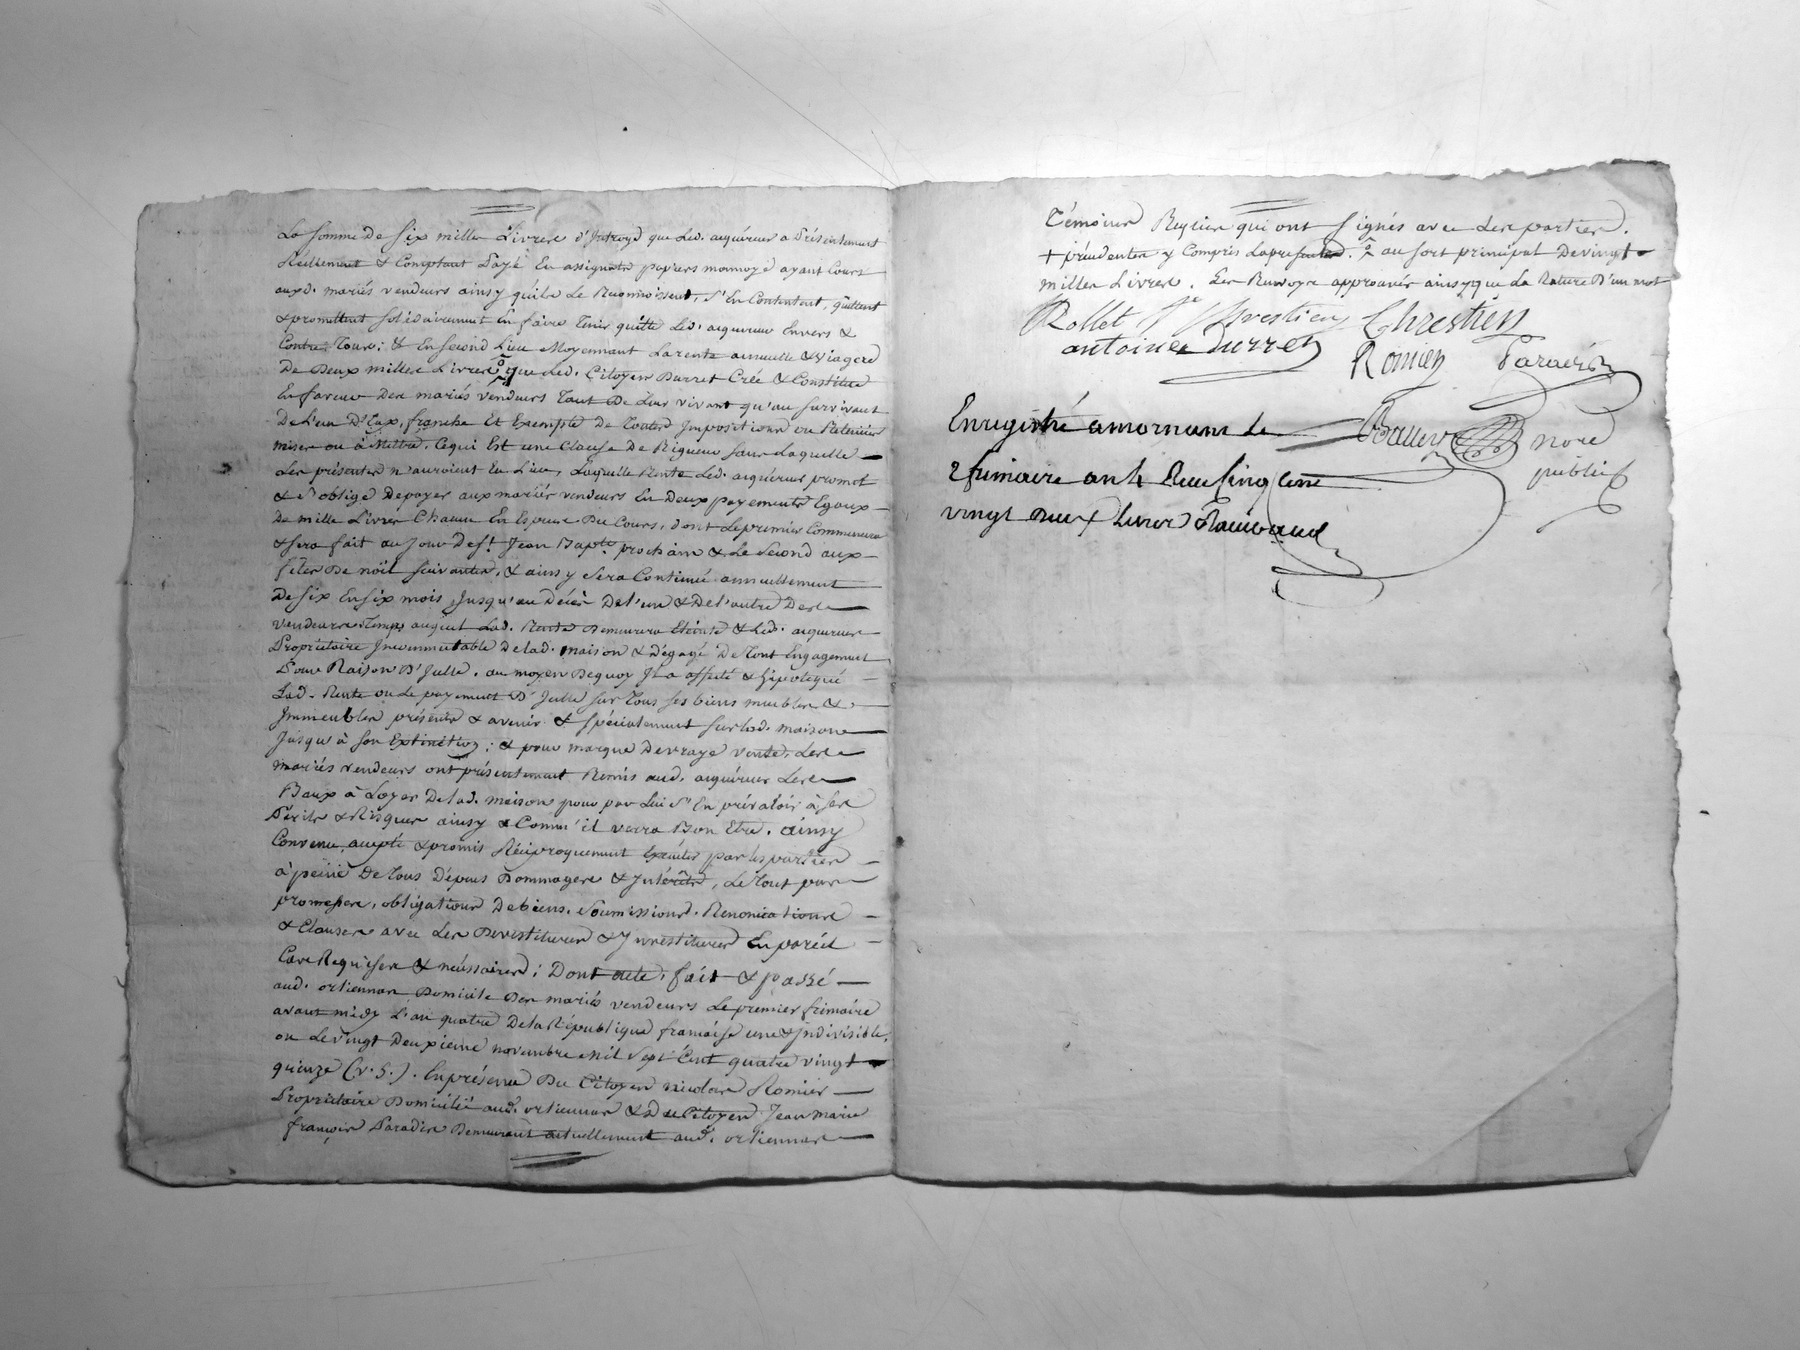 La somme De Six mille Livres d'Introge que Led. acquéreur a Présentement
Réellement & Comptant Payé En assignats papiers monnoyé ayant Cours
auxd. mariés vendeurs ainsy qu'ils Le Reconnoissent, S'En Contentent, quittent
& promettent solidairement En faire Tenir quitte Led. acquereur Envers &
Contre Tous; & En second Lieu Moyennant La rente annuelle & Viagere
De Deux milles Livres que Led. Citoyen Durret Crée & Constitue
En faveur Des mariés vendeurs Tant De Leur vivant qu'au survivant
De L'un D'Eux, franche Et Exempte De Toutes Impositions ou Retenues
mises ou à Mettre, Cequi Est une Clause De Rigueur sans Laquelle
Les présentes n'auroient Eu Lieu, Laquelle Rente Led. acquéreur promet
& s'oblige Depayer aux mariés vendeurs En Deux payements Egaux
De mille Livres Chacun En Espece Du Cours, dont Le premier Commencera
& sera fait au Jour De St. Jean Bapte. prochain & Le Second aux
fetes De noël suivantes, & ainsy sera Continué annuellement
De six En six mois Jusqu'au Décès De l'un & De l'autre Des
vendeurs Temps auquel Lad. Rente Demeurera Eteinte & Led. acquereur
Propriétaire Incommutable De lad. maison & dégagé De Tout Engagement
Pour Raison D'Icelle. au moyen Dequoy Il a affecté & hipotequé
Lad. Rente ou Le payement D'Icelle sur Tous ses biens meubles &
Immeubles présents & avenir & spécialement sur lad. maison
Jusqu'à son Extinction; & pour marque De vraye vente, Les
mariés vendeurs ont présentement Remis aud. acquéreur Les
Baux à Loyer De lad. maison pour par Lui S'En prévaloir à ses
Périls & Risques ainsy & Comm'il verra Bon Etre. ainsy
Convenu, accepté & promis Réciproquement Exécuter par les parties
à peine De Tous Dépens Dommages & Intérêts, Le Tout par
promesses, obligations De biens, Soumissions, Renonciations
& Clauses avec Les Devestitures & Investitures En pareil
Cas Requises & nécessaires; Dont acte, fait & passé
aud. ortiennas Domicile Des mariés vendeurs Le premier frimaire
avant midy L'an quatre De la République francaise une & Indivisible,
ou Le vingt Deuxieme novembre Mil Sept Cent quatre vingt
quinze (v. S.). En présence Du Citoyen nicolas Romier
Propriétaire Domicilié aud. ortiennas & Du Citoyen Jean Marie
françois Paradis Demeurant actuellement aud. ortiennas
Témoins Requis qui ont signés avec Les parties.
+ précedentes y Compris La presente. au sort principal De vingt
milles Livres. Les Renvoys approuvés ainsy que La Rature D'un mot
Rollet Chrestien Chrestien
antoine Durret Romier Paradis
Enregistré a mornant Le nore
2 frimaire an 4 Reçu Cinq Cent public
vingt Deux Livres